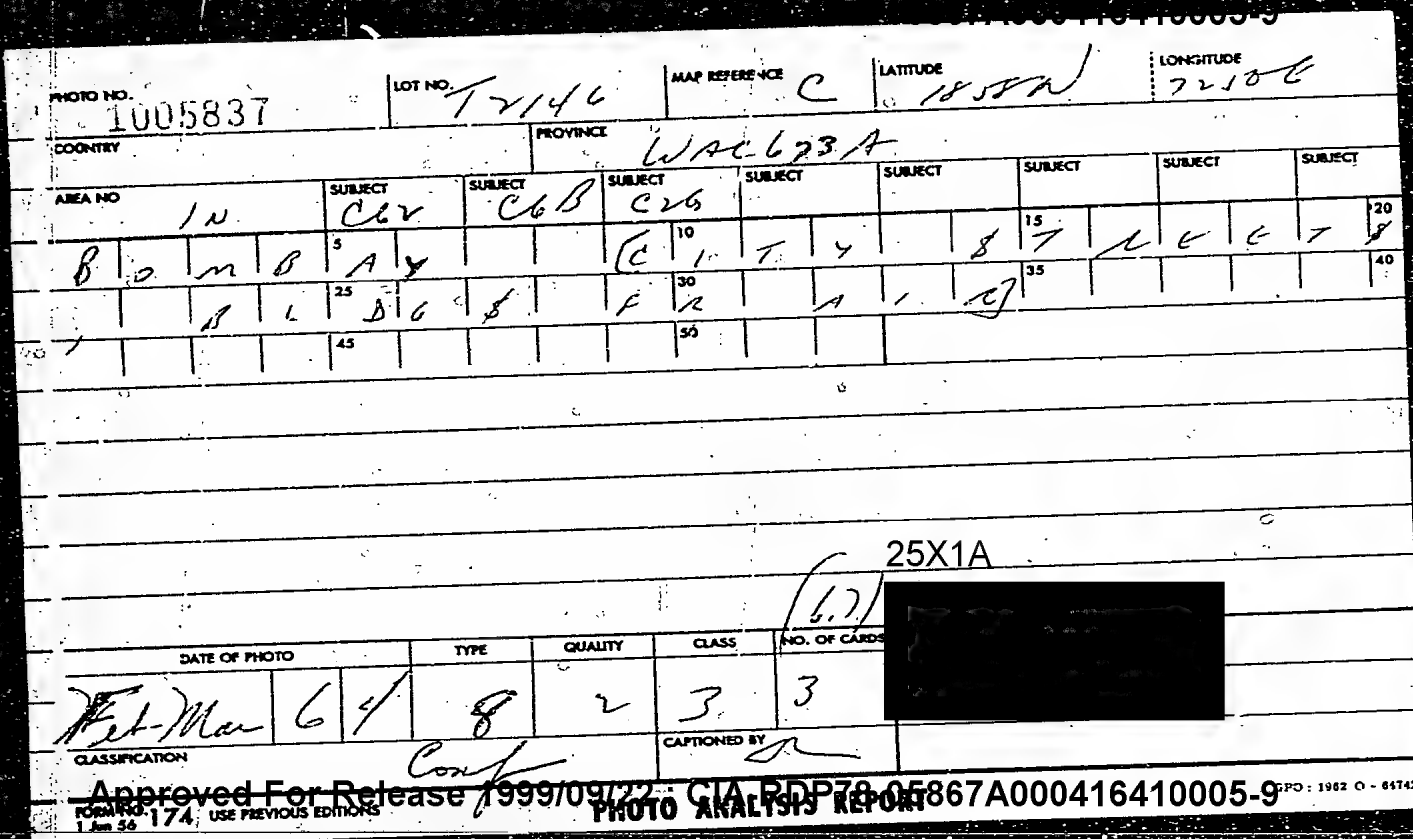 PHOTO NO. 1005837 LOT NO. T2146 MAP REFERENCE C LATITUDE 1858N LONGITUDE 7250E
COUNTRY PROVINCE WAC673A
AREA NO IN SUBJECT C62 SUBJECT C6B SUBJECT C2G SUBJECT SUBJECT SUBJECT SUBJECT SUBJECT
B O M B 5 A Y [C 10 I T Y $ 15 T R E E T 20 $
B L 25 D G $ F 30 R A I R] 35 40
45 50
25X1A
(6.7)
DATE OF PHOTO TYPE QUALITY CLASS NO. OF CARDS
Feb-Mar 6 4 8 2 3 3
CLASSIFICATION Conf CAPTIONED BY
Approved For Release 1999/09/22 : CIA-RDP78-05867A000416410005-9
FORM NO. 174, USE PREVIOUS EDITIONS PHOTO ANALYSIS REPORT
1 Jun 56